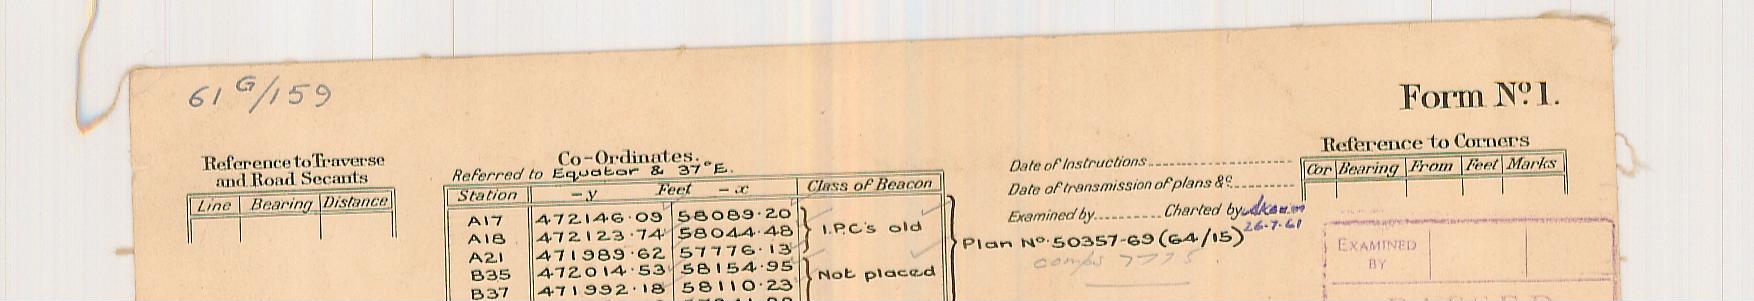 61 G/159
Form Nº 1.
Reference to Traverse
and Road Secants
Line Bearing Distance
Co-Ordinates.
Referred to Equator & 37°E.
Station -y Feet -x Class of Beacon
A17 472146.09 58089.20
A18 472123.74 58044.48 I.P.C's old
A21 471989.62 57776.13
B35 472014.53 58154.95 Not placed
B37 471992.18 58110.23
Date of Instructions
Date of transmission of plans &c
Examined by Charted by
26-7-61
Plan Nº 50357-69 (64/15)
comps 7775
Reference to Corners
Cor Bearing From Feet Marks
EXAMINED
BY